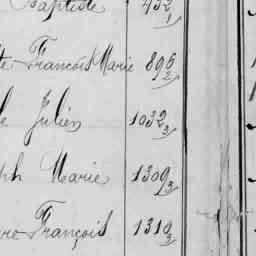 Baptiste 452/1
François Marie 896/2
Julien 1032/3
Marie 1309/3
François 1310/3